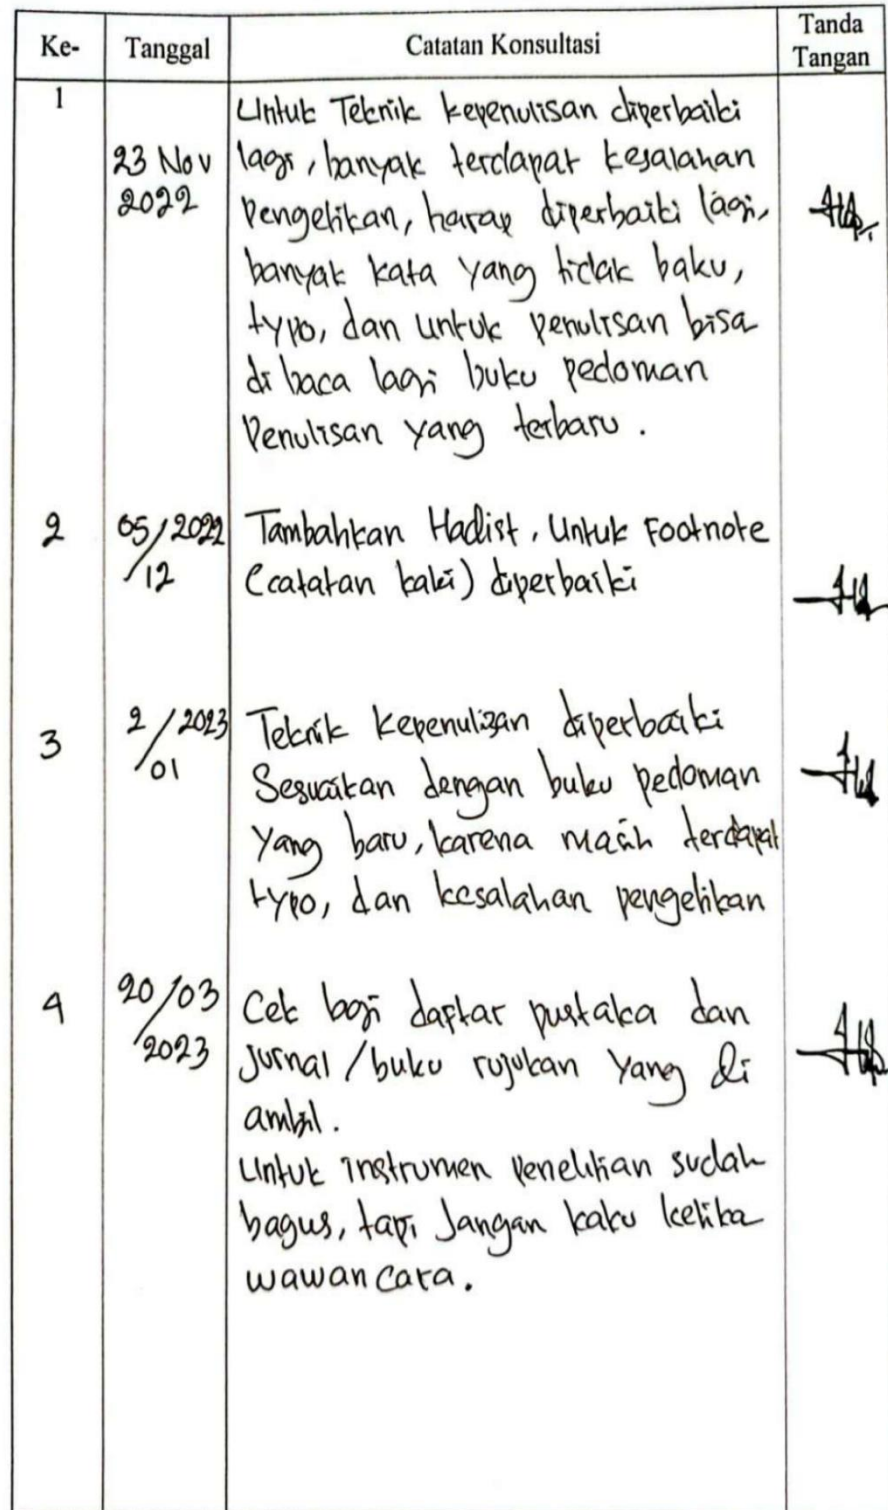 Ke- Tanggal Catatan Konsultasi Tanda Tangan
1
23 Nov 2022
Untuk Teknik kepenulisan diperbaiki
lagi, banyak terdapat kesalahan
Pengetikan, harap diperbaiki lagi,
banyak kata yang tidak baku,
typo, dan untuk penulisan bisa
di baca lagi buku pedoman
Penulisan yang terbaru.
2
05/2022
/12
Tambahkan Hadist, Untuk Footnote
(catatan kaki) diperbaiki
3
2/2023
/01
Teknik kepenulisan diperbaiki
Sesuaikan dengan buku pedoman
Yang baru, karena masih terdapat
typo, dan kesalahan pengetikan
4
20/03
/2023
Cek lagi daftar pustaka dan
Jurnal/buku rujukan yang di
ambil.
Untuk instrumen penelitian sudah
bagus, tapi Jangan kaku ketika
wawancara.